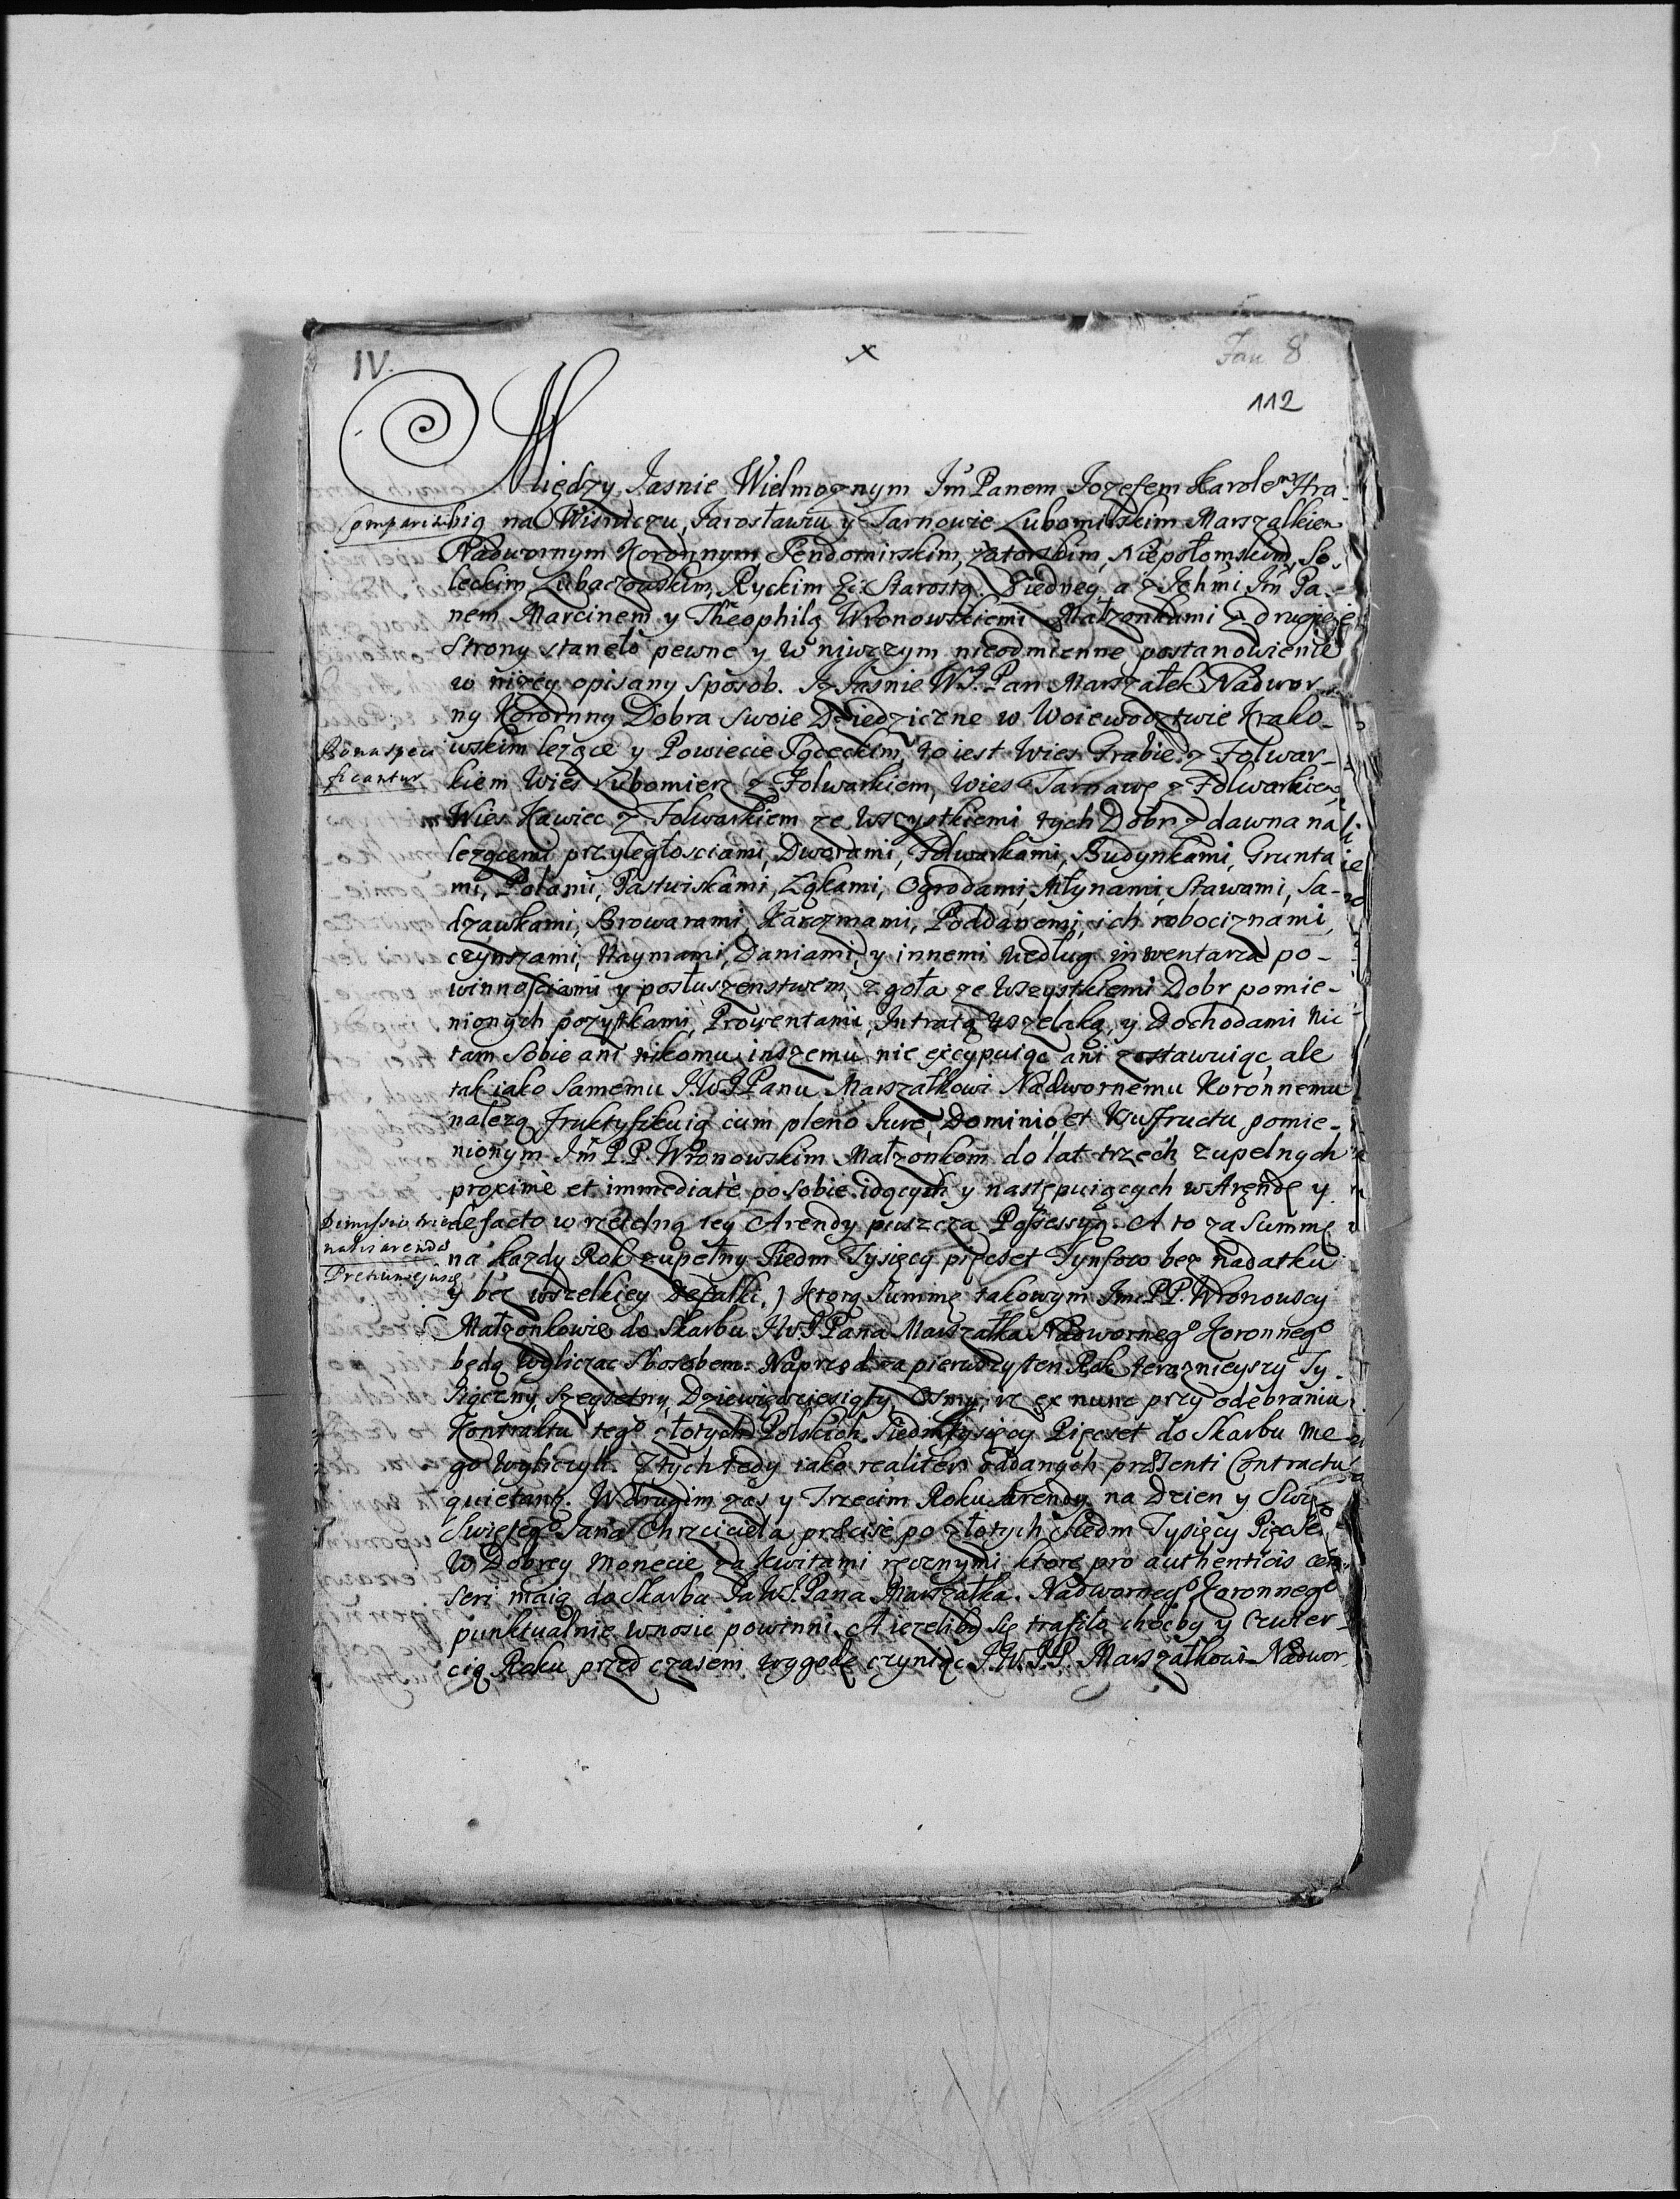 IV.
x
Jan 8
112
Między Jasnie Wielmoznym Jm̃ Panem Jozefem Karolem Hra-
Comparitio
bią na Wisniczu, Jarosławiu y Tarnowie Lubomirskim Marszałkiem
Nadwornym Koronnym Sendomirskim, Zatorskim, Niepołomskim, So-
leckim, Lubaczowskim, Ryckim &c. Starostą. Ziedney, a z Ichm̃i Jm̃ Pa-
nem Marcinem y Theophilą Wronowskiemi Małzonkami z drugiey
Strony stanęło pewne y w niwczym nieodmienne postanowienie
w nizey opisany Sposob. Iz Jasnie W.J. Pan Marszałek Nadwor-
ny Koronny Dobra Swoie Dziedziczne w Woiewodztwie Krako-
Bona speci
ficantur
wskim lezące y Powiecie Sądeckim, to iest Wies Grabie z Folwar-
kiem Wies Lubomierz z Folwarkiem, Wies Tarnawę z Folwarkiem
Wies Kawiec z Folwarkiem ze wszystkiemi tych Dobr z dawna na
lezącemi przyległosciami, Dworami, Folwarkami, Budynkami, Grunta
mi, Polami, Pastwiskami, Łąkami, Ogrodami, Młynami, Stawami, Sa-
dzawkami, Browarami, Karczmami, Poddanemi, ich robociznami,
czynszami, Naymami, Daniami, y innemi według inwentarza po-
winnosciami y posłuszenstwem, zgoła ze wszystkiemi Dobr pomie-
nionych pozytkami, Prowentami, Intratą wszelaką, y Dochodami nic
tam Sobie ani nikomu inszemu nie excypuiąc ani zostawuiąc, ale
tak iako Samemu J.W.J Panu Marszałkowi Nadwornemu Koronnemu
nalezą fruktyfikuią cum pleno Iure, Dominio, et Vsufructu pomie-
nionym Jm̃ P.P. Wronowskim Małzonkom do lat trzech zupełnych
proximè et immediatè po sobie idących y następuiących w Arendę y
Dimissio trien
nalis arendæ
de facto w rzetelną tey Arendy puszcza Possessyą. A to za Summę
na kazdy Rok zupełny Siedm Tysięcy pięcset Tynfow bez nadatku
Pretium ejusq
y bez wszelkiey Defalki.) Ktorą Summę takowym Jm̃ P.P. Wronowscy
Małzonkowie do Skarbu J.W.J. Pana Marszałka Nadwornego Koronnego
będą wyliczac Sposobem: Naprzod za pierwszy ten Rok terazniejszy Ty-
siączny, Szescsetny, Dziewięcdziesiąty Osmy, iz ex nunc przy odebraniu
Kontraktu tego złotych Polskich Siedmtysięcy Pięcset do Skarbu me-
go wyliczyli. Z tych tedy iako realiter oddanych præsenti Contractu
quietant. W drugim zas y Trzecim Roku Arendy na Dzien y Swię
Swiętego Jana Chrzciciela præcisè po złotych Siedm Tysięcy Pięcset
w Dobrey Monecie za kwitami ręcznymi ktore pro authenticis cen-
seri maią do Skarbu Ja W.J. Pana Marszałka Nadwornego Koronnego
punktualnie wnosic powinni. A iezeliby się trafiło chocby y czwier-
cią Roku przed czasem wygodę czyniąc J.W.J.P. Marszałkowi Nadwor